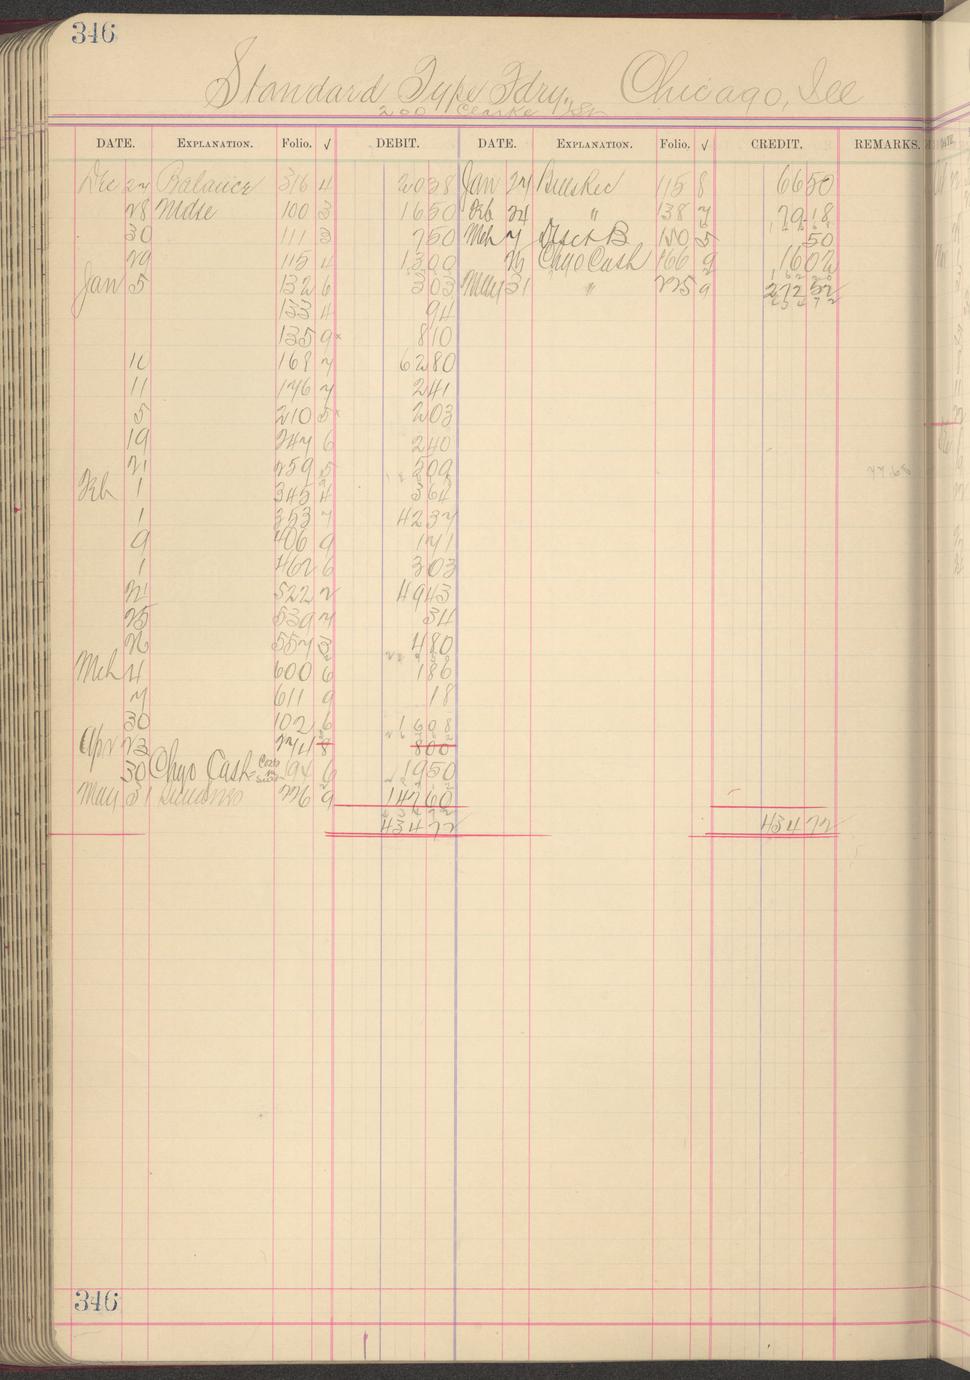 346
Standard Type Fdry. Chicago, Ill
200 Clarke St
DATE. EXPLANATION. Folio. √ DEBIT. DATE. EXPLANATION. Folio. √ CREDIT. REMARKS.
Dec 27 Balance 316 4 2038 Jan 27 Bills Rec 115 8 6650
28 Mdse 100 3 1650 Feb 24 " 138 7 7918
30 111 3 750 Mch 7 Disct B 150 5 50
29 115 4 1300 Chgo Cash 166 9 1602
Jan 5 132 6 303 May 31 " 225 9 27252
133 4 94
135 9 x 810
168 7 6280
11 176 7 241
5 210 5 x 203
19 247 6 240
21 259 5 509
Feb 1 345 4 364
1 353 7 4237
9 406 9 171
1 462 6 303
21 522 2 4943
25 539 7 34
26 557 3 480
Mch 4 600 6 186
7 611 9 18
30 102 6 1608
Apr 23 8 800
30 Chgo Cash 94 6 1950
May 31 226 9 14260
43472 43472
346